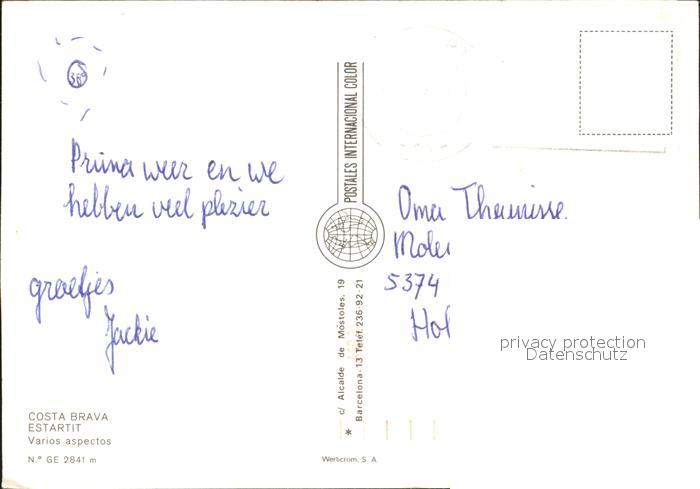 36°
Prima weer en we
hebben veel plezier
groetjes
Jackie
COSTA BRAVA
ESTARTIT
Varios aspectos
N.° GE 2841 m
POSTALES INTERNACIONAL COLOR
c/ Alcalde de Móstoles, 19
Barcelona-13 Teléf. 236-92-21
*
Werticrom, S. A.
Oma Theunisse.
5374
Hol
privacy protection
Datenschutz